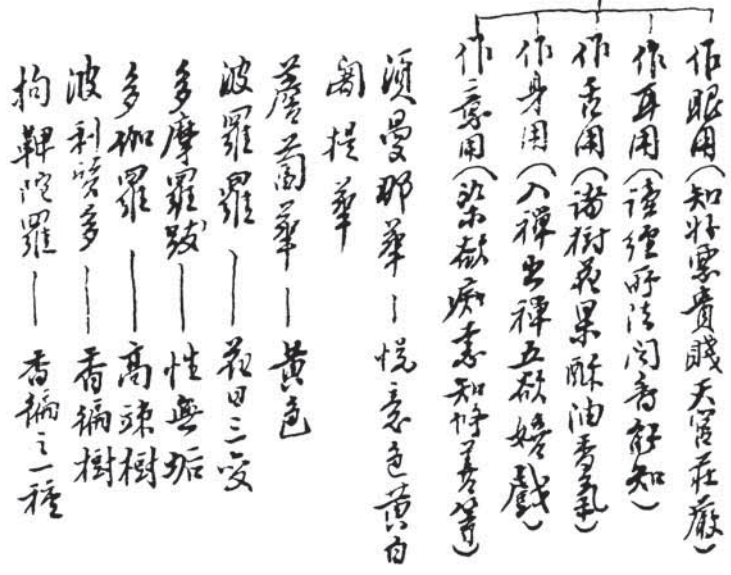 作眼用(知好惡貴賤天宮莊嚴)
作耳用(讀經聽法聞香能知)
作舌用(諸樹花果酥油香氣)
作身用(入禪出禪五欲嬉戲)
作意用(染欲癡恚知修善等)
須曼那華—悅意色黃白
闍提華
薝蔔華—黃色
波羅羅—花日三變
多摩羅跋—性無垢
多伽羅—高竦樹
波利質多—香徧樹
拘鞞陀羅—香徧之一種